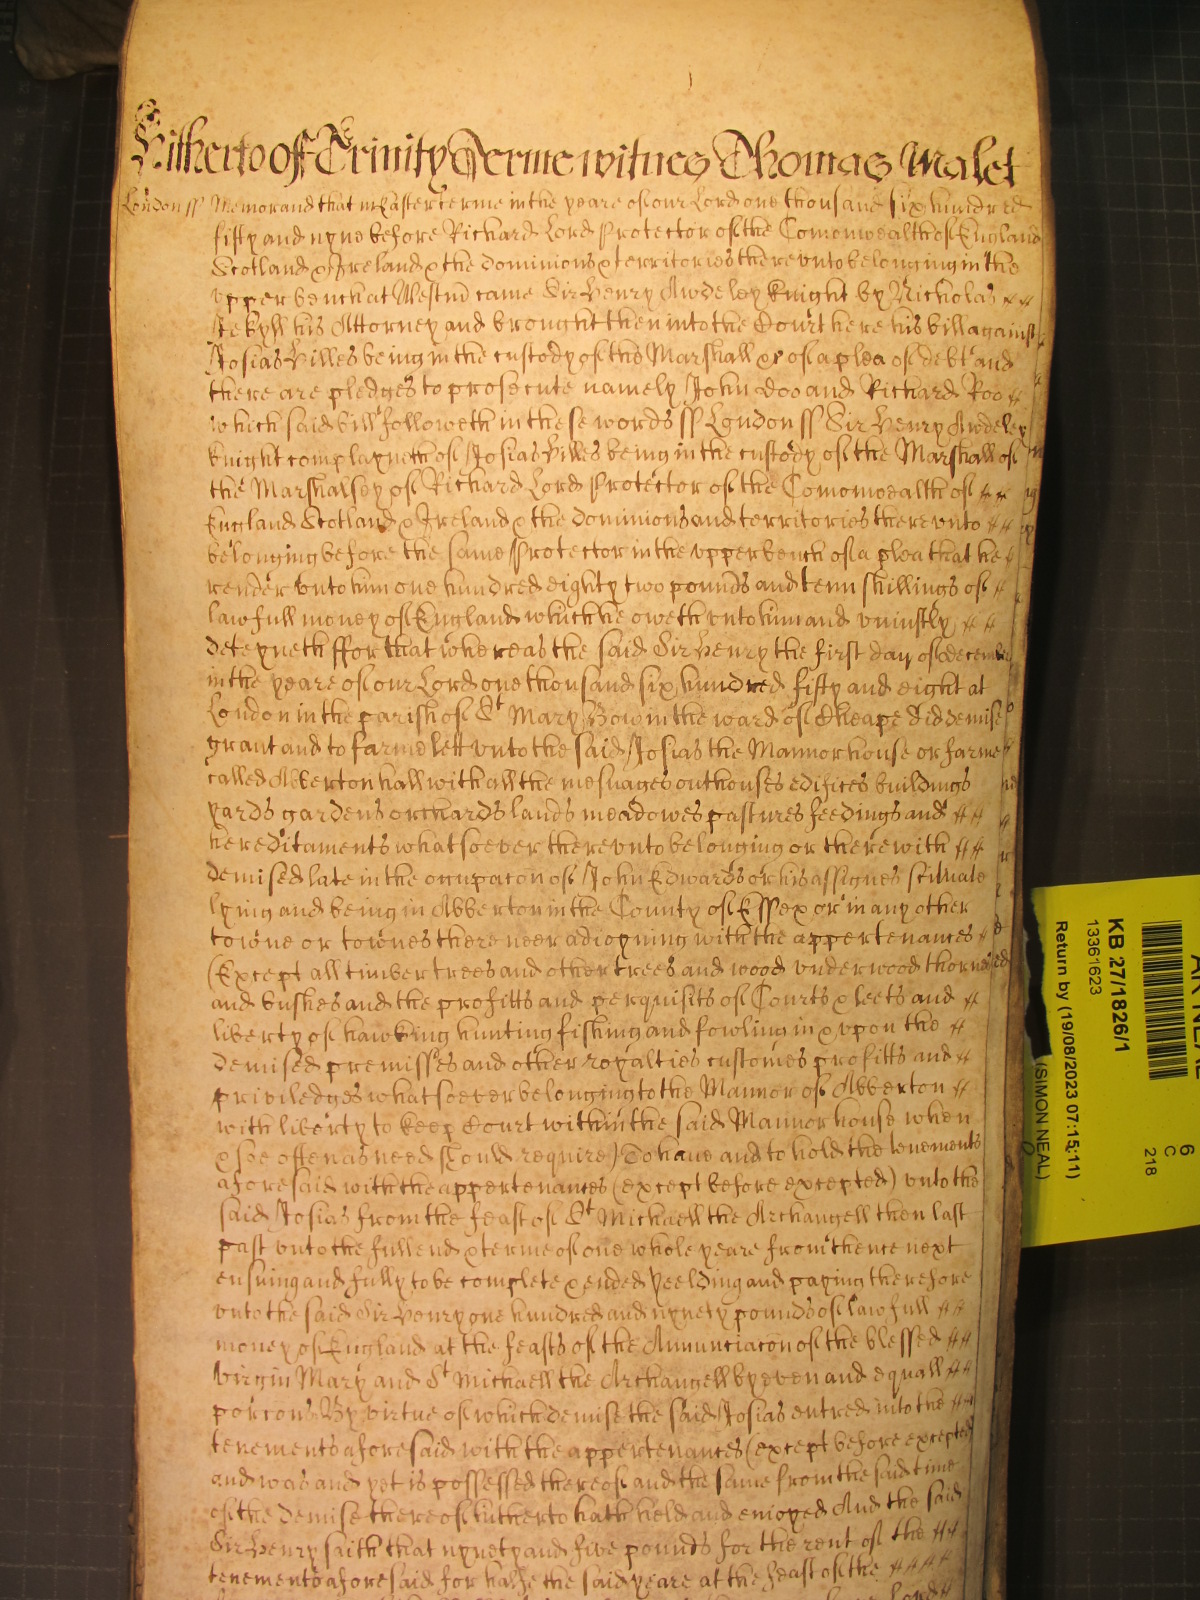 Hitherto off Trinity Terme witnes Thomas Malet
London ss Memorand that in Easter terme in the yeare of our Lord one thousand six hundred
fifty and nyne before Richard Lord Protector of the Comonwealth of England
Scotland & Ireland & the dominions & territories thereunto belonging in the
upper bench at Westm came Sir Henry Awdeley Knight by Nicholas
Jekyll his Attorney and brought then into the Court here his bill against
Josias Hilles being in the custody of the Marshall &c of a plea of debt and
there are pledges to prosecute namely John Doo and Richard Roo
which said bill followeth in these words ss London ss Sir Henry Awdeley
Knight complayneth of Josias Hilles being in the custody of the Marshall of
the Marshalsey of Richard Lord Protector of the Comonwealth of
England Scotland & Ireland & the dominions and territories thereunto
belonging before the same Protector in the upper bench of a plea that he
render unto him one hundred eighty two pounds and tenn shillings of
lawfull money of England which he oweth unto him and uniustly
deteyneth ffor that whereas the said Sir Henry the first day of december
in the yeare of our Lord one thousand six hundred fifty and eight at
London in the parish of St Mary Bow in the ward of Cheape did demise
grant and to farme lett unto the said Josias the Mannor house or farme
called Abberton hall with all the messuages outhouses edifices buildings
yards gardens orchards lands meadowes pastures feedings and
hereditaments whatsoever thereunto belonging or therewith
demised late in the occupacon of John Edwards or his assignes scituate
lying and being in Abberton in the County of Essex or in any other
towne or townes there neer adioyning with the appertenances
(Except all timber trees and other trees and wood underwood thornes
and bushes and the profitts and perquisits of Courts & leets and
liberty of hawking hunting fishing and fowling in & upon the
demised premisses and other royalties customes profitts and
priviledges whatsoever belonging to the Mannor of Abberton
with liberty to keep Court within the said Mannor house when
& soe often as need should require) To have and to hold the tenements
aforesaid with the appertenances (except before excepted) unto the
said Josias from the feast of St Michaell the Archangell then last
past unto the full end & terme of one whole yeare from thence next
ensuing and fully to be complete & ended yeelding and paying therefore
unto the said Sir Henry one hundred and nynety pounds of lawfull
money of England at the feasts of the Annunciacon of the blessed
virgin Mary and St Michaell the Archangell by even and equall
porcons By virtue of which demise the said Josias entred into the
tenements aforesaid with the appertenances (except before excepted)
and was and yet is possessed thereof and the same from the said time
of the demise thereof hitherto hath held and enioyed And the said
Sir Henry saith that nynety and five pounds for the rent of the
tenements aforesaid for halfe the said yeare at the feast of the
KB 27/1826/1
13361623
Return by (19/08/2023 07:15:11)
(SIMON NEAL)
6
C
218